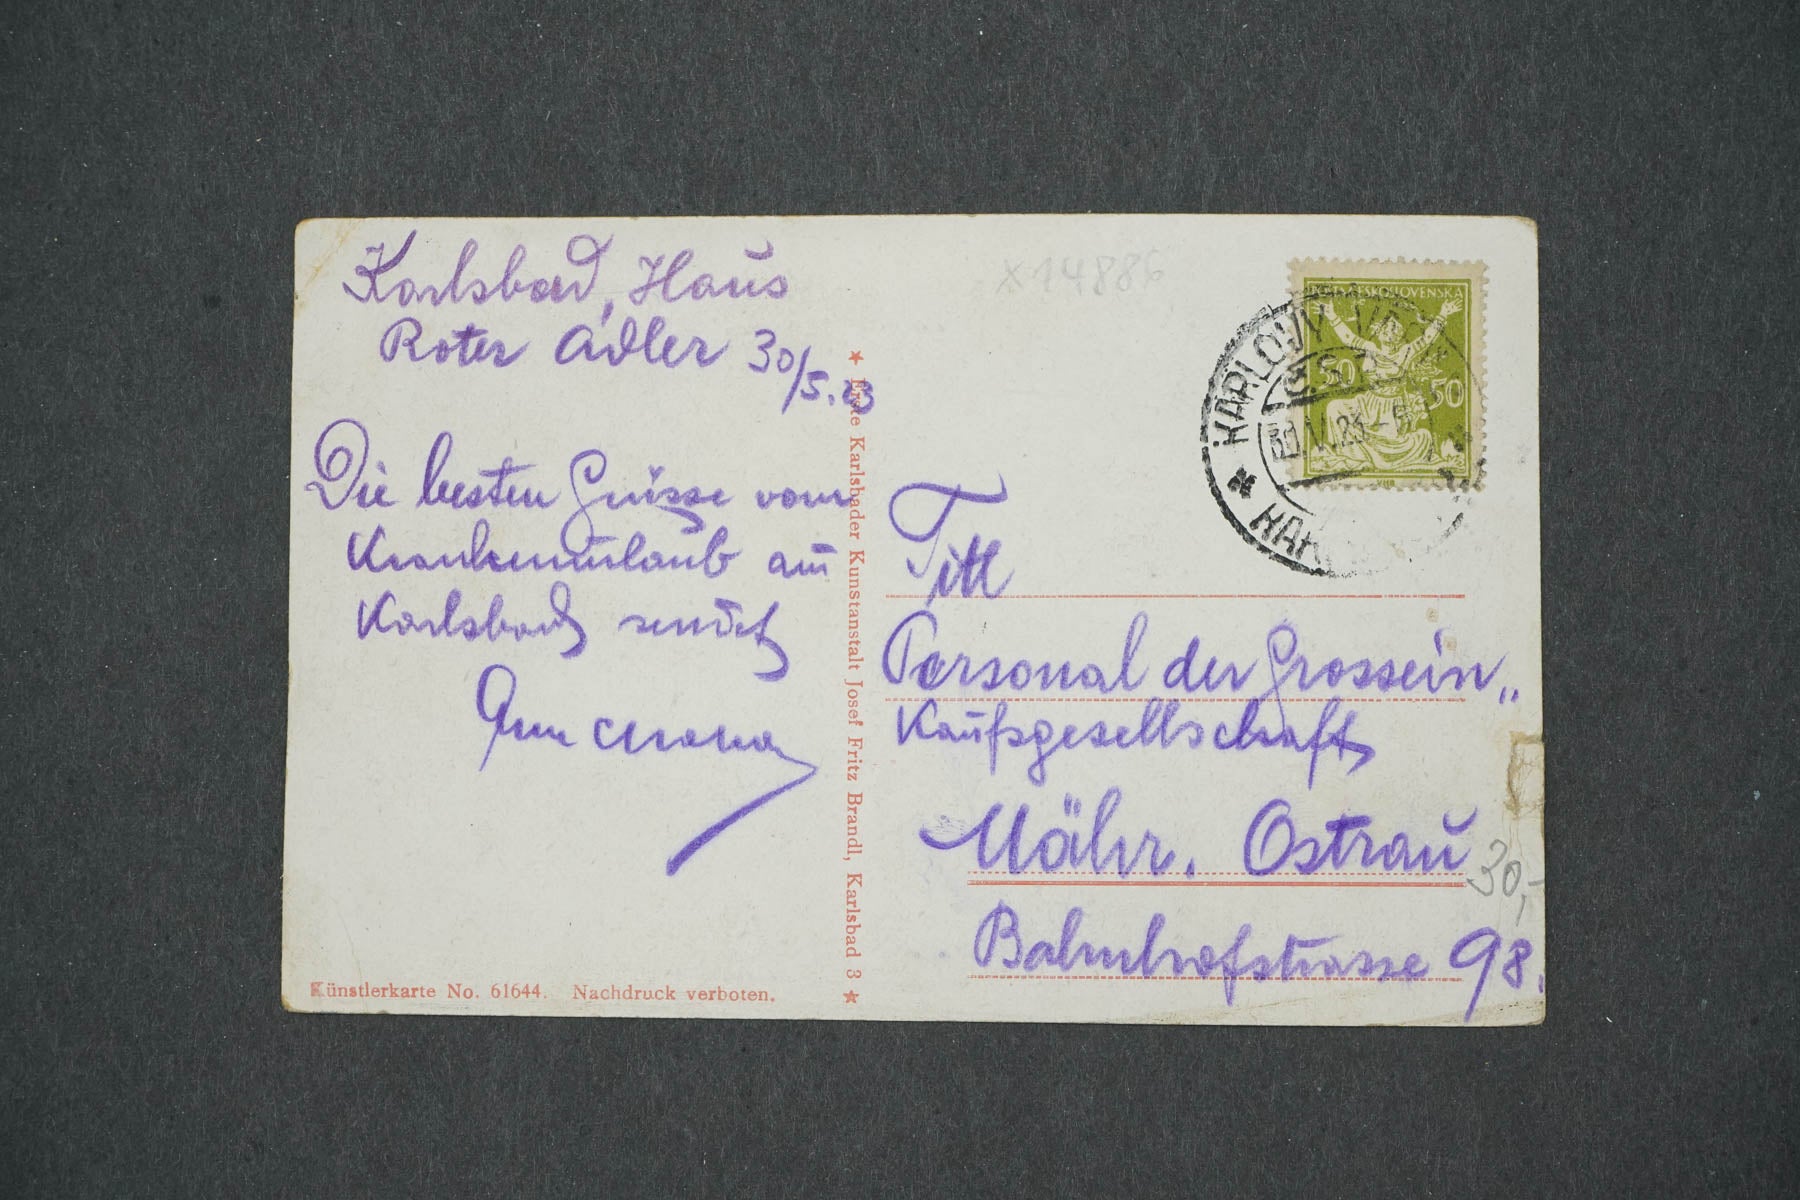 Karlsbad, Haus
Roter Adler 30/5.23
Die besten Grüsse vom
Krankenurlaub aus
Karlsbad sendet
x14886
POŠTA ČESKOSLOVENSKÁ
50 50
KARLOVY VARY
30.V.23
Titl
Personal der Grossein„
kaufsgesellschaft
Mähr. Ostrau
Bahnhofstrasse 98.
30,-
★ Erste Karlsbader Kunstanstalt Josef Fritz Brandl, Karlsbad 3 ★
Künstlerkarte No. 61644. Nachdruck verboten.